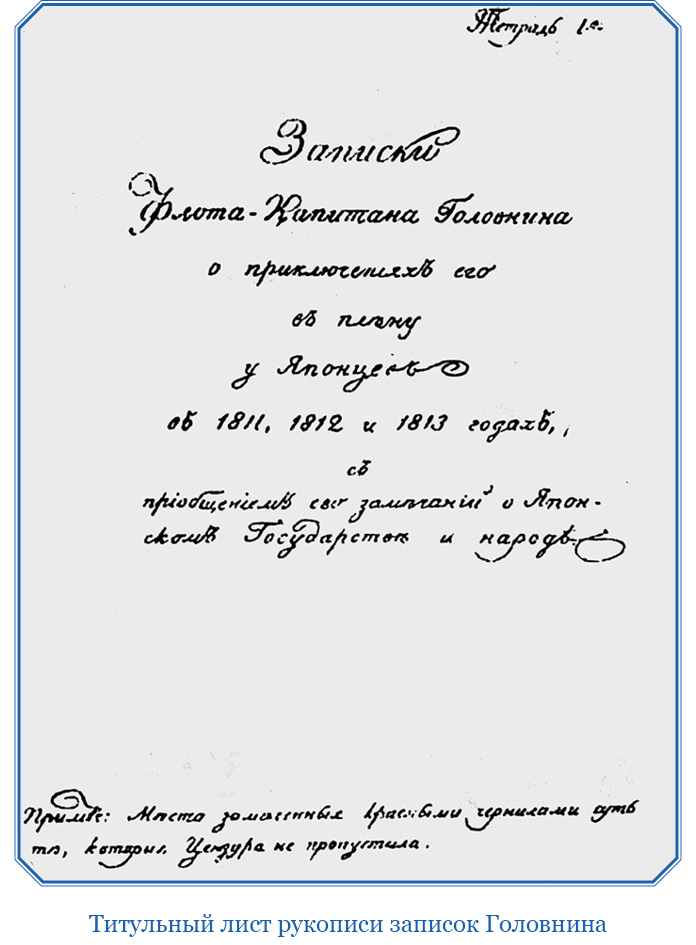 Тетрадь 1.е.
Записки
Флота-Капитана Головнина
о приключеніяхъ его
въ плѣну
у Японцевъ
въ 1811, 1812 и 1813 годахъ,
съ
пріобщеніемъ его замѣчаній о Япон-
скомъ Государствѣ и народѣ
Примѣч: Мѣста замазанныя красными чернилами суть
тѣ, которыя Цензура не пропустила.
Титульный лист рукописи записок Головнина